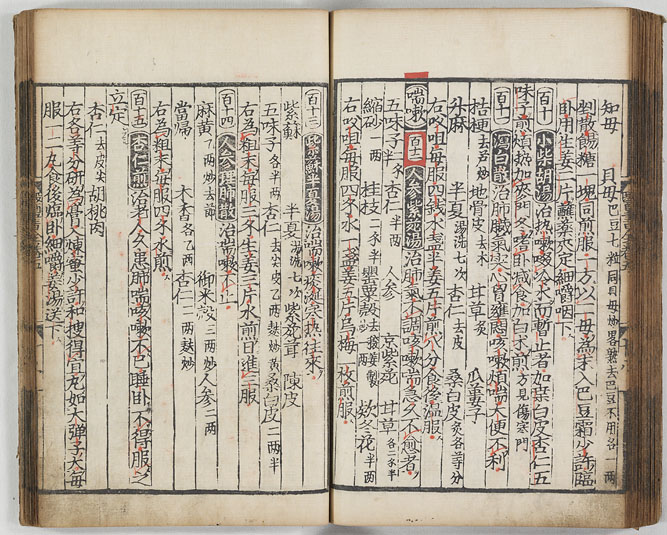 知母 貝母巴豆七粒同貝母炒略熟去巴豆不用各一兩
剉散餳糖一塊同煎服一方以二母為末入巴豆霜少許臨
臥用生姜二片蘸藥夾定細嚼咽下
百十 小柴胡湯 治 嗽 而暫止者加桑白皮杏仁五
味子煎煩熱加麥門冬嗜臥減食加白朮煎方見傷寒門
百十一 瀉白散 治肺臟氣實心胃壅悶咳嗽煩喘大便不利
桔梗去芦炒 地骨皮去木 瓜蔞子
升麻 半夏湯洗七次 杏仁去皮 桑白皮炙各等分
右㕮咀每服四錢水壹半姜五片煎八分食後溫服
喘嗽 百十二 人参紫菀湯 治肺氣不調咳嗽喘急久不愈者
五味子半兩 杏仁半兩 人参 京紫菀 甘草各二錢半
縮砂一兩 桂枝二錢半 罌粟殼去瓤姜製 款冬花半兩
右㕮咀每服四錢水一盞姜五片烏梅二枚煎服
百十三 紫蘇半夏湯 治喘嗽痰涎寒熱往來
紫蘇 半夏湯洗七次 紫菀茸 陳皮
五味子各半兩 杏仁去尖皮乙兩麩炒黃 桑白皮二兩半
右為粗末每服三錢生姜三片水煎日進三服
百十四 人参理肺散 治喘嗽不止
麻黃乙兩炒去節 御米殼三兩炒 人参二兩
當歸 木香各乙兩 杏仁二兩麩炒
右為粗末每服四錢水煎
百十五 杏仁煎 治老人久患肺喘咳嗽不已睡臥不得服之
立定
杏仁去皮尖 胡桃肉
右各等分研為膏入煉蜜少許和搜得宜丸如大彈子大每
服一二丸食後臨臥細嚼姜湯送下